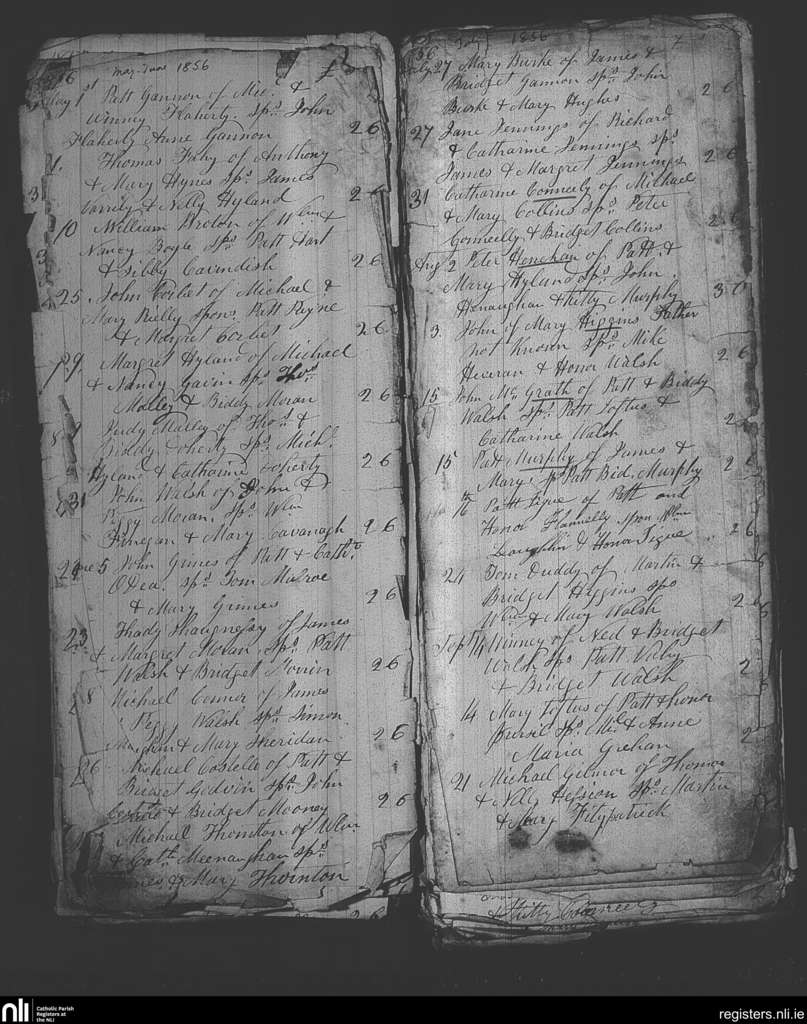 May-June 1856
May 1st Patt Gannon of Mic. &
Winney Flaherty. Sps. John
Flaherty Anne Gannon 2 6
Thomas Fahy of Anthony
& Mary Hynes Sps. James
& Nelly Hyland 2 6
10 William Broton of Wlm &
Nancy Boyle Sps. Patt Hart
& Sibby Cavendish 2 6
25 John Corliet of Michael &
Mary Reilly Spons. Patt Reyne
& Margret Corliet 2 6
29 Margret Hyland of Michael
& Nancy Gavin Sps. Thos.
Malley & Biddy Moran 2 6
Judy Malley of Thos. &
Biddy Doherty Sps. Michl.
Hyland & Catharine Doherty 2 6
31 John Walsh of John &
Peggy Moran. Sps. Wlm
Finegan & Mary Cavanagh 2 6
June 5 John Grines of Patt & Cathe.
O'Dea. Sps. Tom Mulroe
& Mary Grines 2 6
23 Thady Shaugnessy of James
& Margret Moran Sps. Patt
Walsh & Bridget 2 6
28 Michael Conner of James
& Peggy Walsh Sps. Simon
& Mary Sheridan 2 6
26 Michael Costello of Patt &
Bridget Godwin Sps. John
Costello & Bridget Mooney 2 6
Michael Thornton of Wlm
& Cath. Meenaughan Sps.
James & Mary Thornton
July 1856 7
July 27 Mary Burke of James &
Bridget Gannon Sps. John
Burke & Mary Hughes 2 6
27 Jane Jennings of Richard
& Catharine Jennings Sps.
James & Margret Jennings 2 6
31 Catharine Conneely of Michael
& Mary Collins Sps. Peter
Conneelly & Bridget Collins 2 6
Aug 2 Peter Henehan of Patt. &
Mary Hyland Sps. John
Henaughan & Kitty Murphy 3 0
3. John of Mary Higgins Father
not Known Sps. Mike
Heveran & Honor Walsh 2 6
15 John Mc. Grath of Patt & Biddy
Walsh Sps. Patt Loftus &
Catharine Walsh 2
15 Patt Murphy of James &
Mary. Sp Patt Bid. Murphy 2 6
16 Patt Tigue of Patt and
Honor Flannelly Spon Wlm
Loughlin & Honor Tigue 2 6
24 Tom Duddy of Martin &
Bridget Higgins Sps
Wlm & Mary Walsh 2 6
Sept 14 Winney of Ned & Bridget
Walsh Sps Patt
& Bridget Walsh 2
14 Mary Loftus of Patt & Honor
Sps. Ml. & Anne
Maria Grehan 2
21 Michael Gilmor of Thomas
& Nelly Hession Sps. Martin
& Mary Fitzpatrick
& Kitty
nli Catholic Parish
Registers at
the NLI
registers.nli.ie